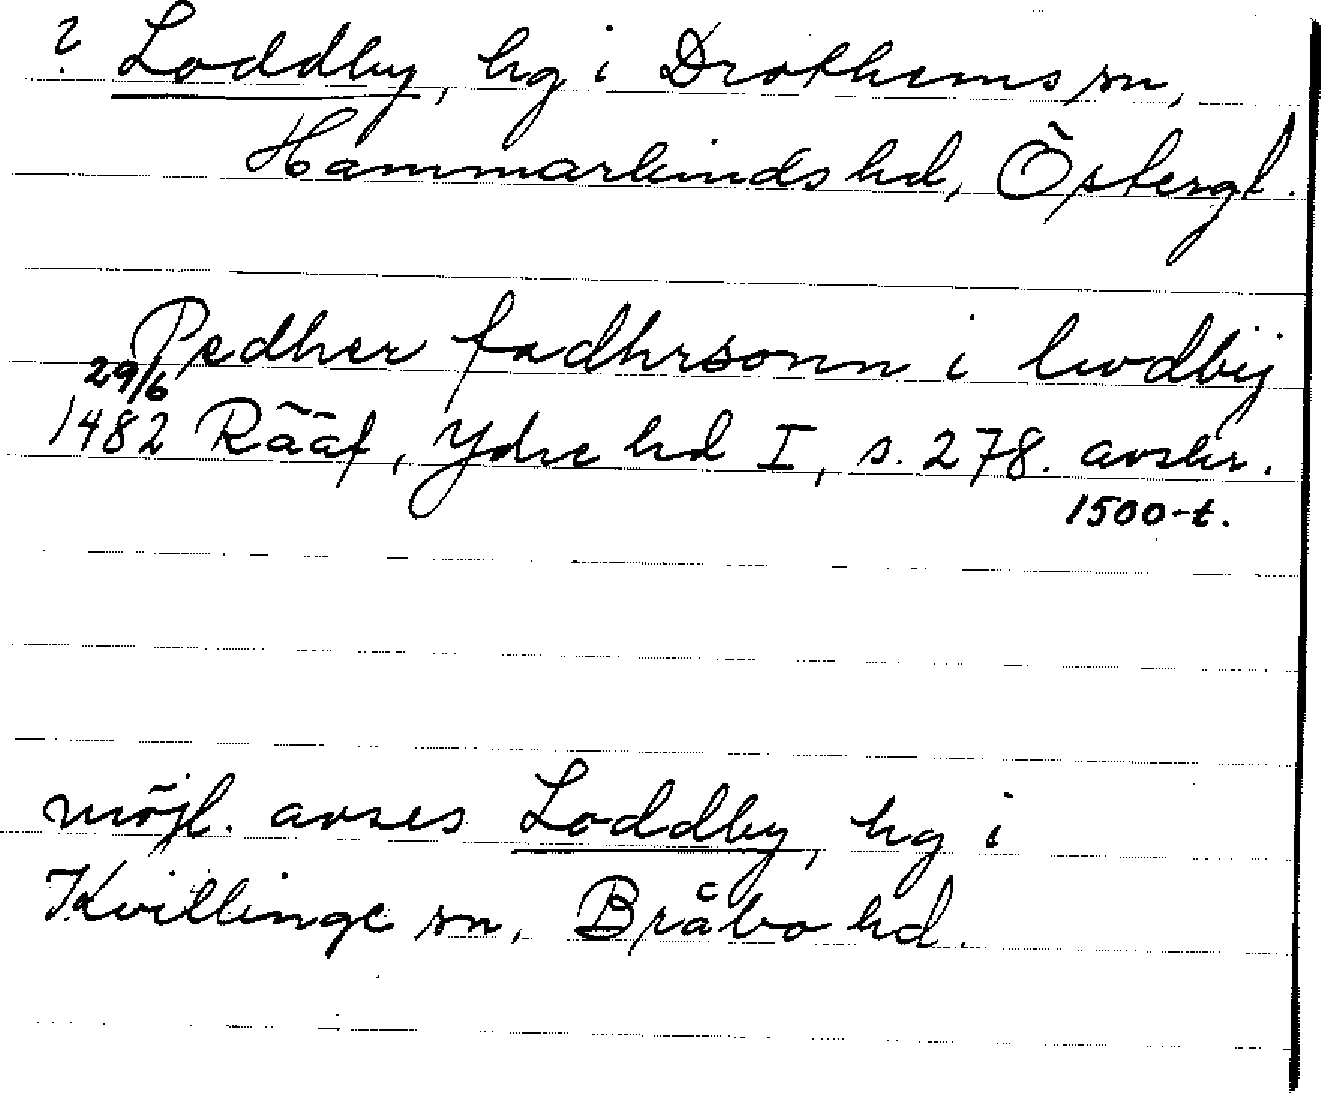 ? Loddby, hg i Drothems sn,
Hammarkinds hd, Östergl.
Pedher fadhrsonn i lwdbÿ
29/6
1482 Rääf, Ydre hd I, s. 278. avskr.
1500-t.
möjl. avses Loddby, hg i
Kvillinge sn, Bråbo hd.